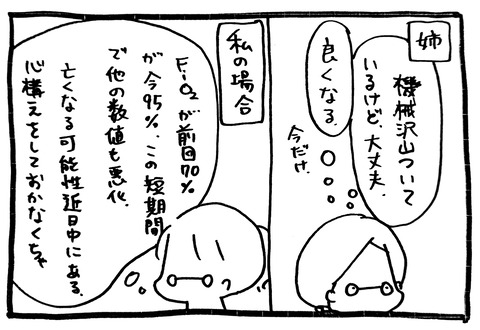 姉
機械沢山ついて
いるけど、大丈夫.
良くなる.
今だけ.
私の場合
FiO₂が前回70%
が今95%. この短期間
で他の数値も悪化.
亡くなる可能性近日中にある.
心構えをしておかなくちゃ